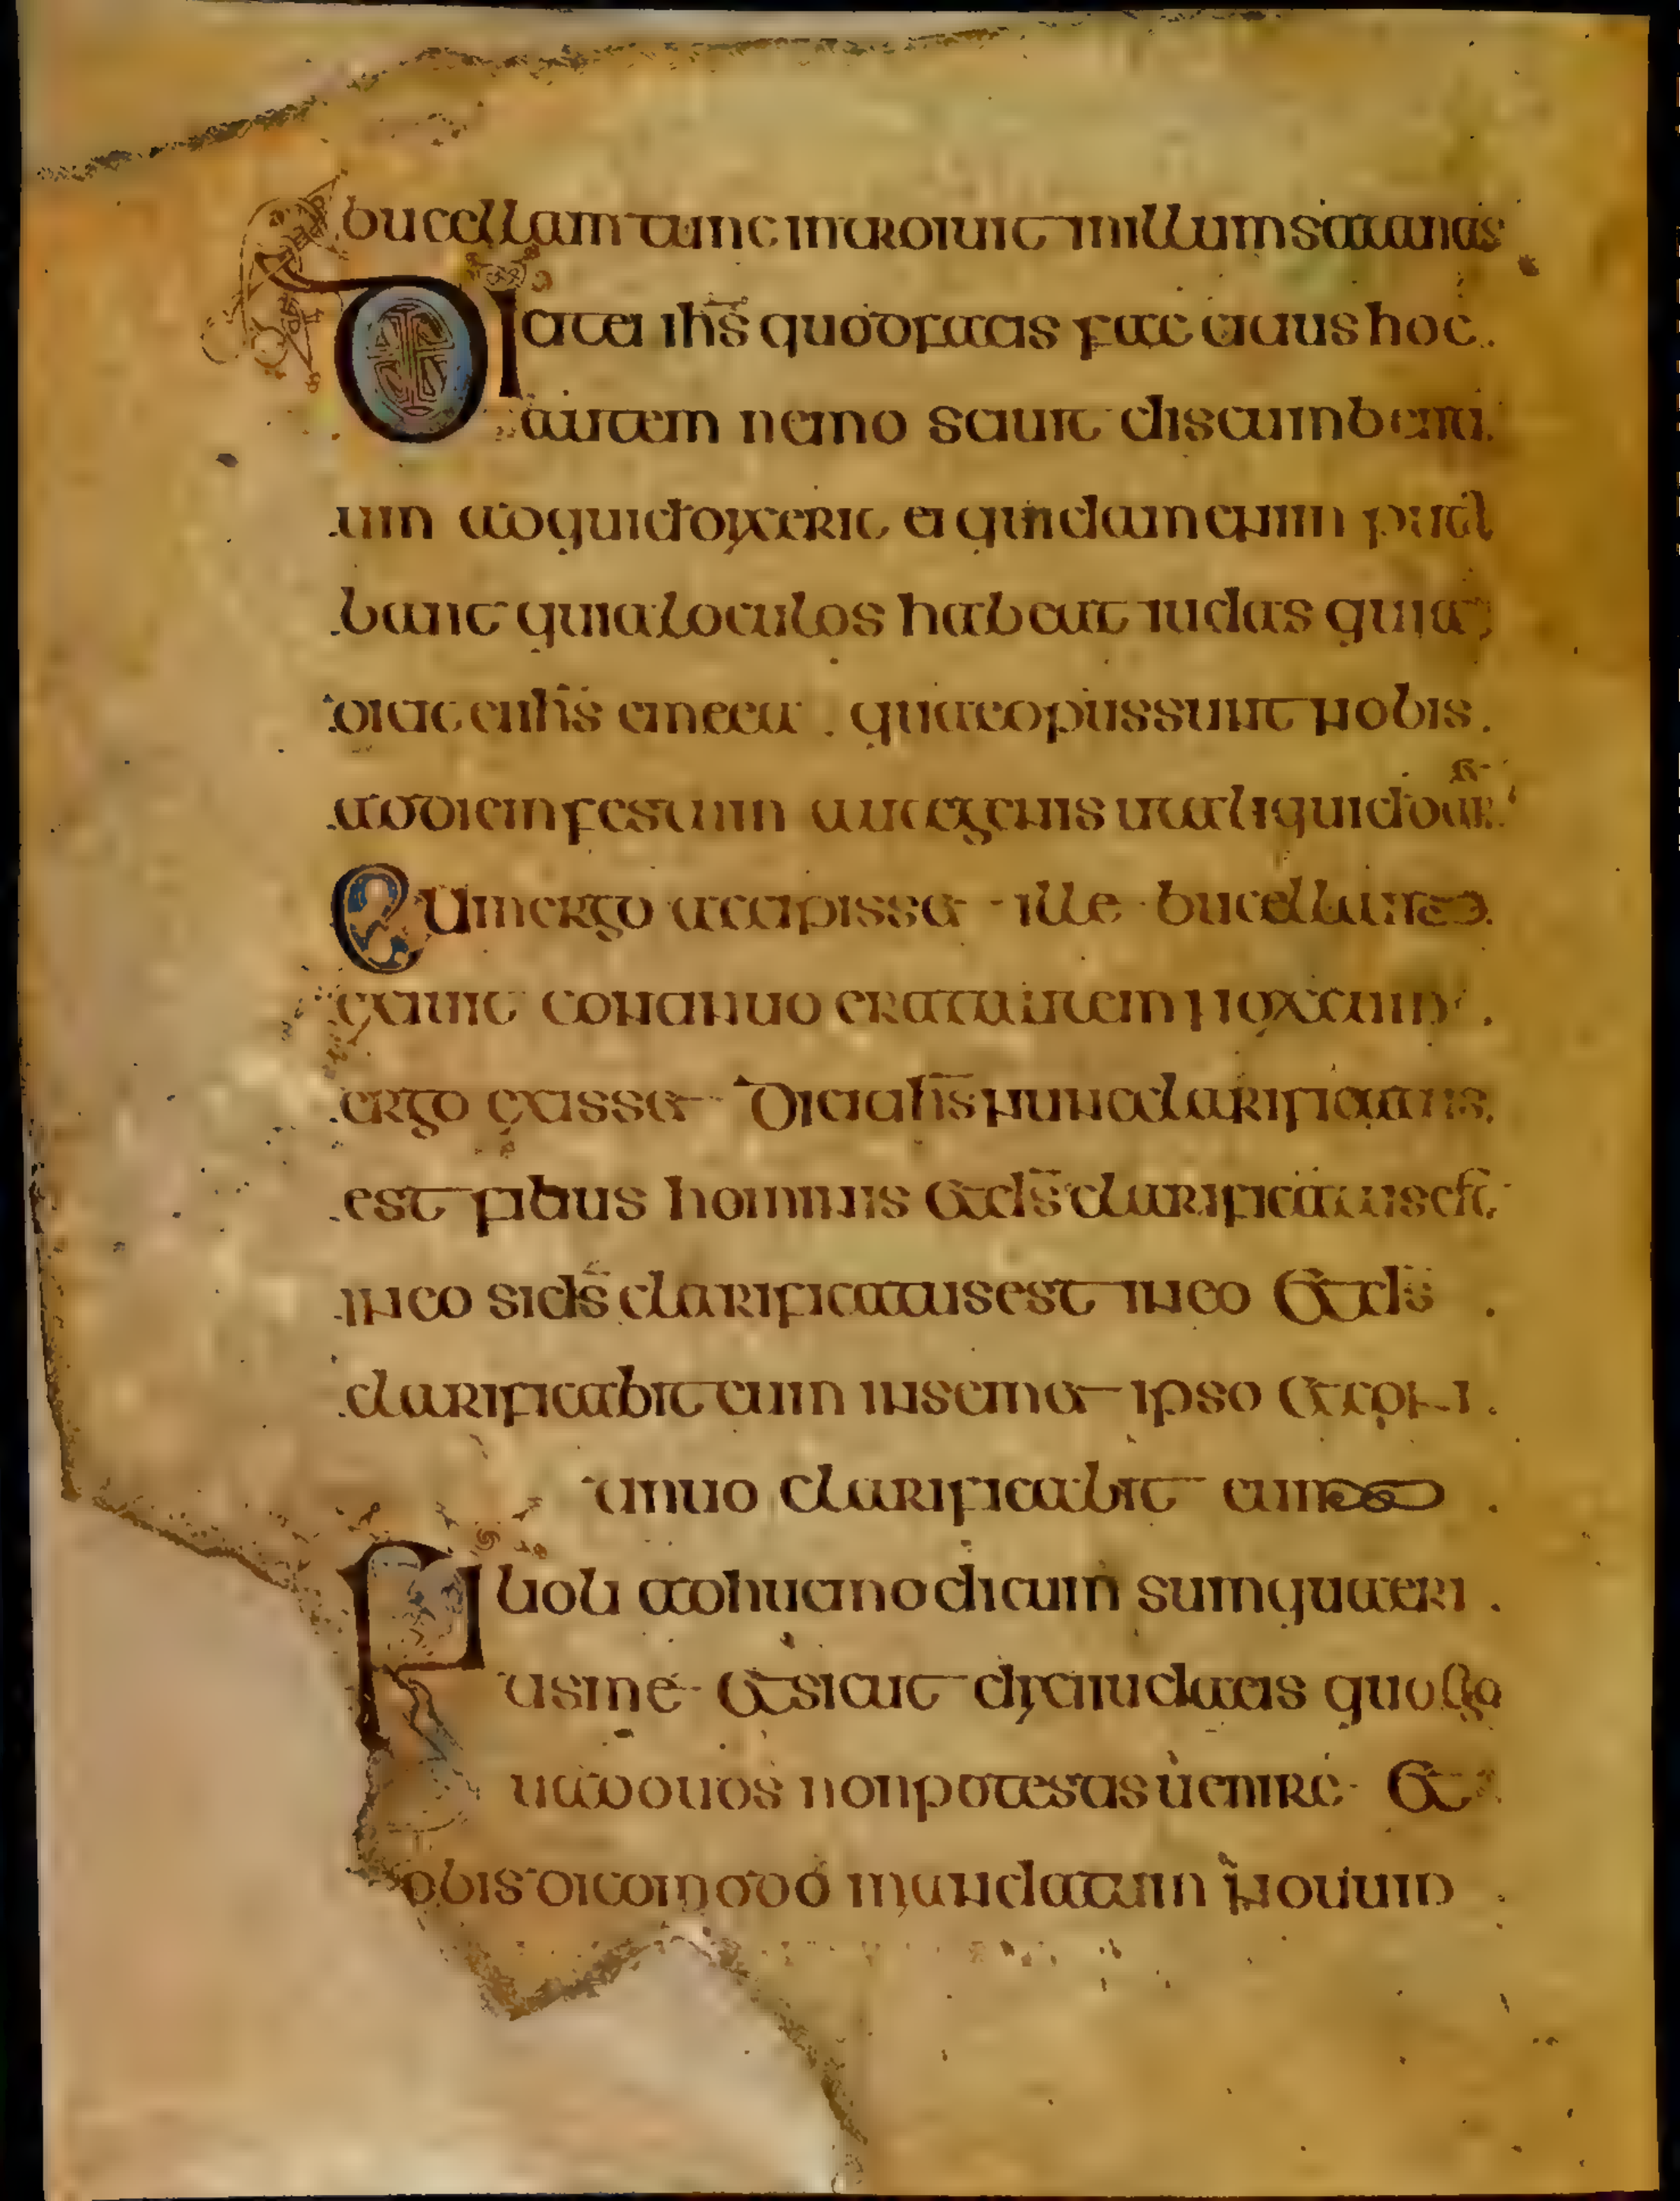 bucellam tunc introiuit in illum satanas
Dicit ei ihs̄ quod facis fac citius hoc
autem nemo sciuit discumbenti
um ad quid dixerit ei quidam enim puta
bant quia loculos habebat iudas quia
dicit ei ihs̄ eme ea quae opus sunt nobis
ad diem festum aut egenis ut aliquid daret
Cum ergo accipisset ille bucellam
exiuit continuo erat autem nox cum
ergo exisset Dicit ihs̄ nunc clarificatus
est filius hominis et ds̄ clarificatus est
in eo si ds̄ clarificatus est in eo Et ds̄
clarificabit eum in semet ipso et conti
tinuo clarificabit eum
Filioli adhuc modicum uobiscum sum quaeri
tis me et sicut dixi iudaeis quo ego
uado uos non potestis uenire Et
uobis dico modo mandatum nouum